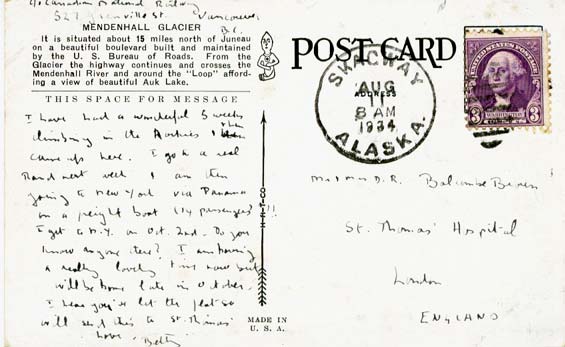 c/o Canadian National Railway
527 Granville St. Vancouver
B.C.
MENDENHALL GLACIER
It is situated about 15 miles north of Juneau
on a beautiful boulevard built and maintained
by the U. S. Bureau of Roads. From the
Glacier the highway continues and crosses the
Mendenhall River and around the "Loop" afford-
ing a view of beautiful Auk Lake.
THIS SPACE FOR MESSAGE
I have had a wonderful 5 weeks
climbing in the Rockies then
came up here. I go to a real
Ranch next week I am then
going to New York via Panama
on a freight boat (14 passengers)!!
I get to N.Y. on Oct. 2nd. Do you
know anyone there? I am having
a really lovely time now but
will be home late in October.
I hear you've let the flat so
will send this to St. Thomas'
Love, Betty
MADE IN
U. S. A.
POST CARD
ADDRESS
SKAGWAY
AUG
11
8 AM
1934
ALASKA.
UNITED STATES POSTAGE
3 WASHINGTON 3
Mr & Mrs D.R. Balcombe Brown
St. Thomas' Hospital
London
ENGLAND